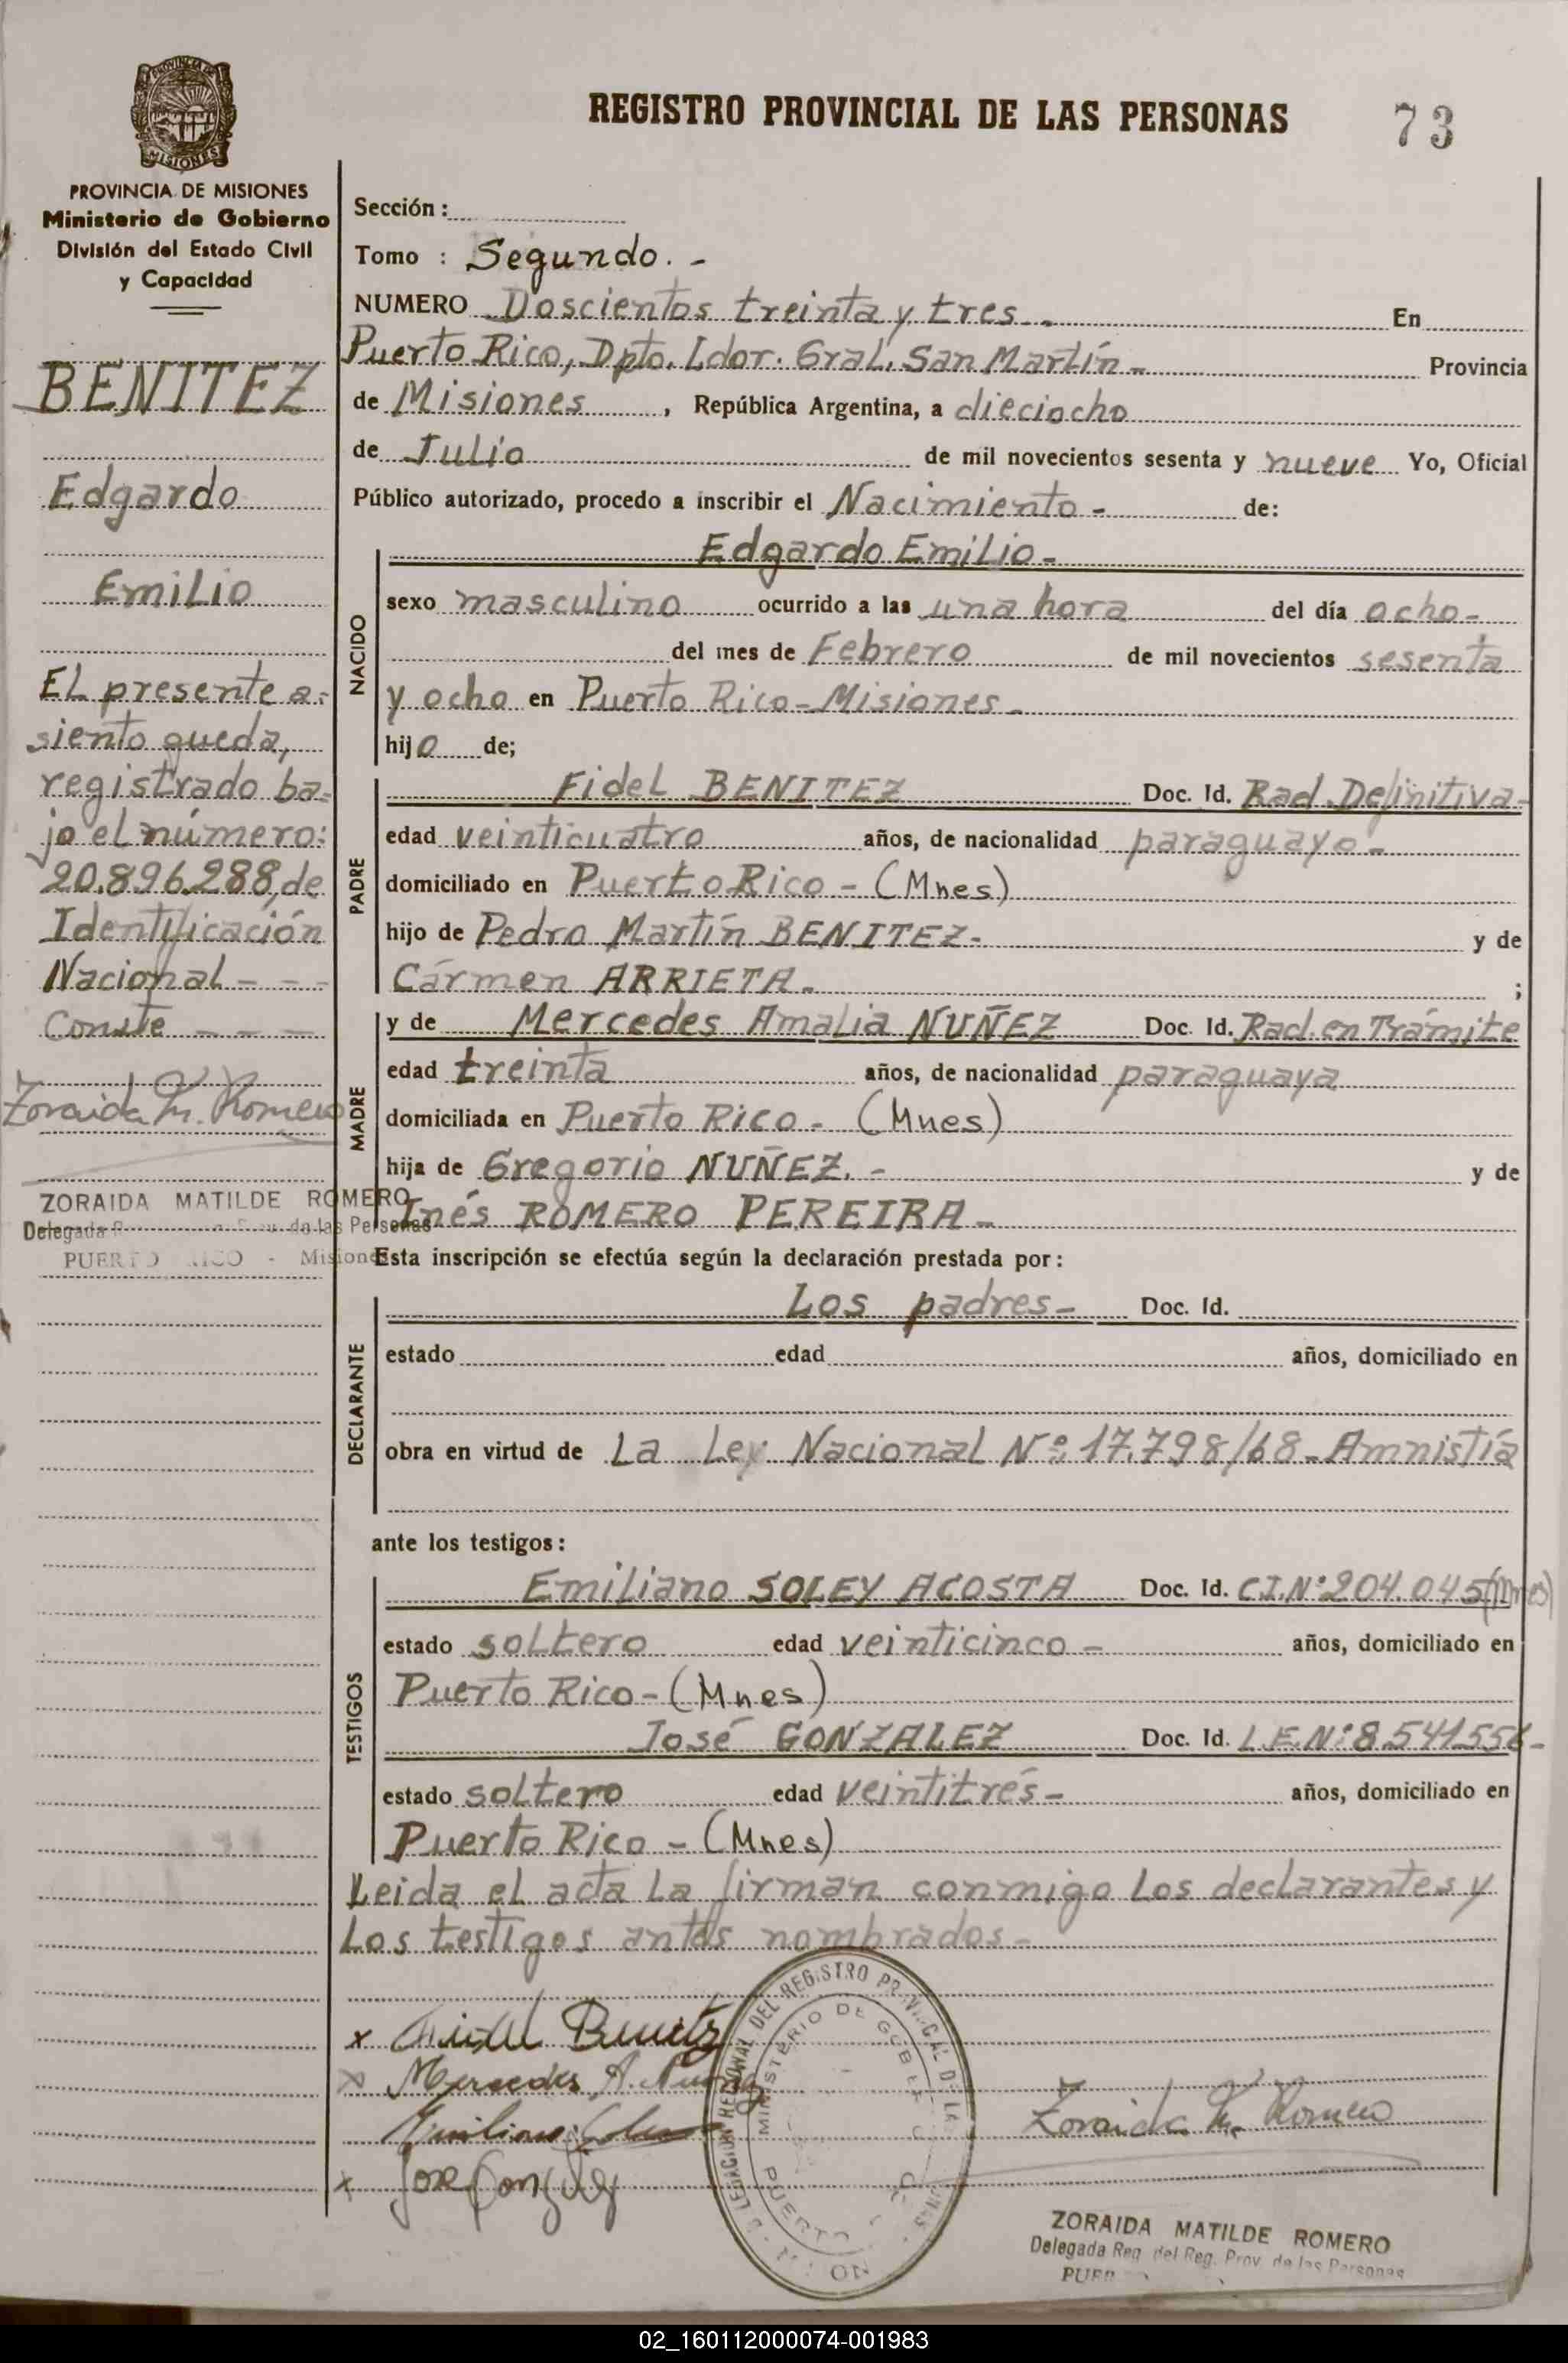 REGISTRO PROVINCIAL DE LAS PERSONAS
73
PROVINCIA DE MISIONES
MISIONES
PROVINCIA DE MISIONES
Ministerio de Gobierno
División del Estado Civil
y Capacidad
BENITEZ
Edgardo
Emilio
El presente a-
siento queda,
registrado ba-
jo el número:
20.896.288, de
Identificación
Nacional - - -
Conste - - -
Zoraida M. Romero
ZORAIDA MATILDE ROMERO
Delegada de las Personas
PUERTO RICO - Misiones
Sección :
Tomo : Segundo. -
NUMERO Doscientos treinta y tres - En
Puerto Rico, Dpto. Ldor. Gral. San Martín - Provincia
de Misiones , República Argentina, a dieciocho
de Julio de mil novecientos sesenta y nueve Yo, Oficial
Público autorizado, procedo a inscribir el Nacimiento - de:
NACIDO
Edgardo Emilio -
sexo masculino ocurrido a las una hora del día ocho -
del mes de Febrero de mil novecientos sesenta
y ocho en Puerto Rico - Misiones -
hijo de;
PADRE
Fidel BENITEZ Doc. Id. Rad. Definitiva -
edad veinticuatro años, de nacionalidad paraguayo -
domiciliado en Puerto Rico - (Mnes)
hijo de Pedro Martín BENITEZ - y de
Cármen ARRIETA - ;
MADRE
y de Mercedes Amalia NUÑEZ Doc. Id. Rad. en Trámite
edad treinta años, de nacionalidad paraguaya
domiciliada en Puerto Rico - (Mnes)
hija de Gregorio NUÑEZ. - y de
Inés ROMERO PEREIRA -
Esta inscripción se efectúa según la declaración prestada por :
DECLARANTE
Los padres - Doc. Id.
estado edad años, domiciliado en
obra en virtud de La Ley Nacional Nº: 17.798/68 - Amnistía
ante los testigos :
TESTIGOS
Emiliano SOLEY ACOSTA Doc. Id. C.I.Nº 204.045 (Mnes)
estado soltero edad veinticinco - años, domiciliado en
Puerto Rico - (Mnes)
José GONZALEZ Doc. Id. L.E.Nº: 8.541.556 -
estado soltero edad veintitrés - años, domiciliado en
Puerto Rico - (Mnes)
Leida el acta la firman conmigo los declarantes y
los testigos antes nombrados -
x Fidel Benitez
x Mercedes A. Nuñez
Emiliano
x Jose Gonzalez
DELEGACION REGIONAL DEL REGISTRO PROVINCIAL DE LAS
MINISTERIO DE GOB
PUERTO
Zoraida M. Romero
ZORAIDA MATILDE ROMERO
Delegada Reg. del Reg. Prov. de las Personas
02_160112000074-001983